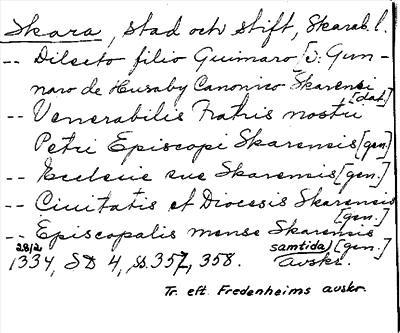 Skara, stad och stift, Skarab. l.
-- Dilecto filio Guimaro [ɔ: Gun-
naro de Husaby Canonico Skarensi
[dat]
-- Venerabilis Fratris nostri
Petri Episcopi Skarensis [gen.]
-- Ecclesie sue Skarensis [gen.]
-- Ciuitatis et Diocesis Skarensis
[gen.]
-- Episcopalis mense Skarensis
28/2 samtida) [gen.]
1334, SD 4, ss. 357, 358. avskr.
Tr. eft. Fredenheims avskr.